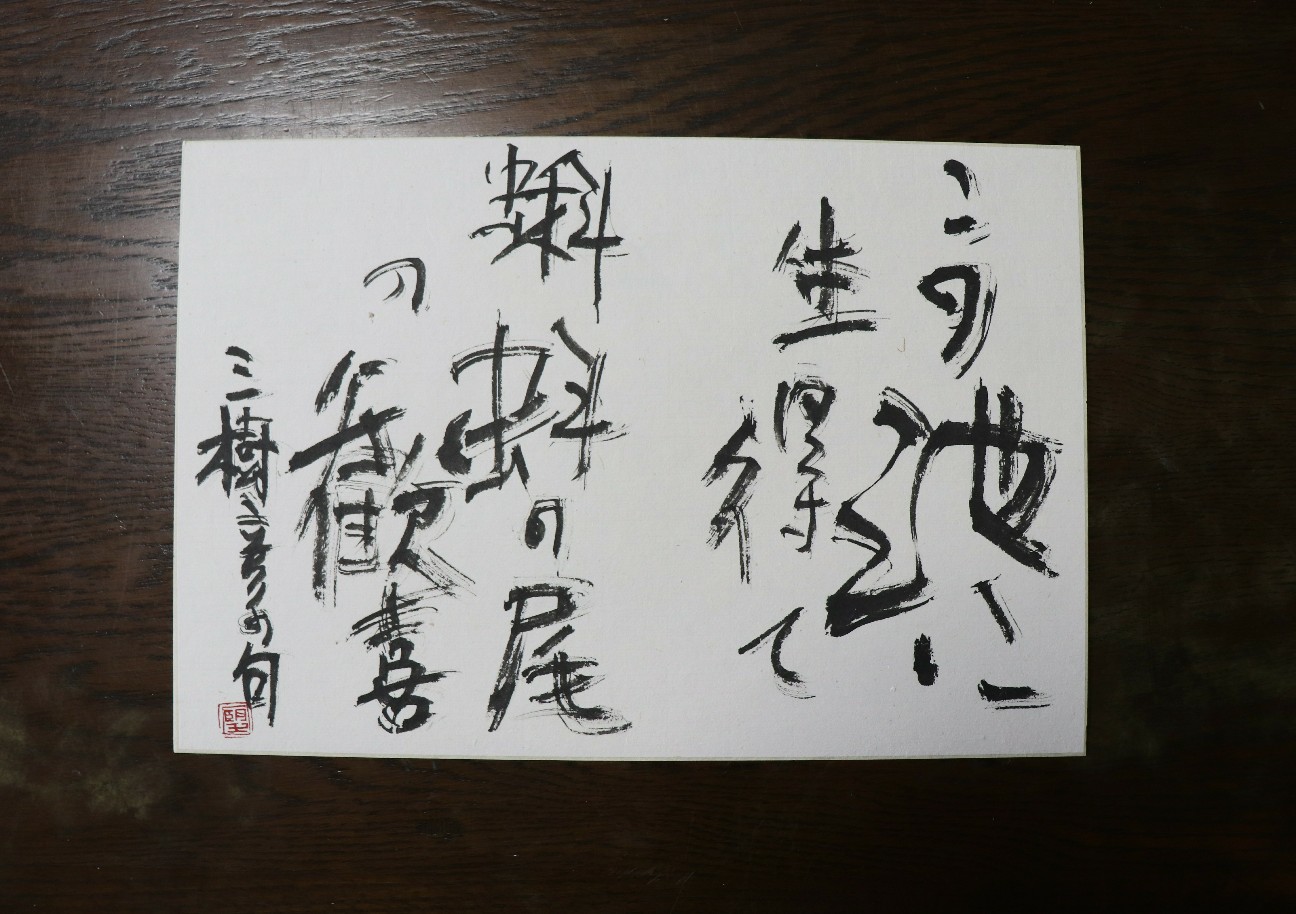 この池に
生得て
蝌蚪の尾
の歓喜
三樹彦の句